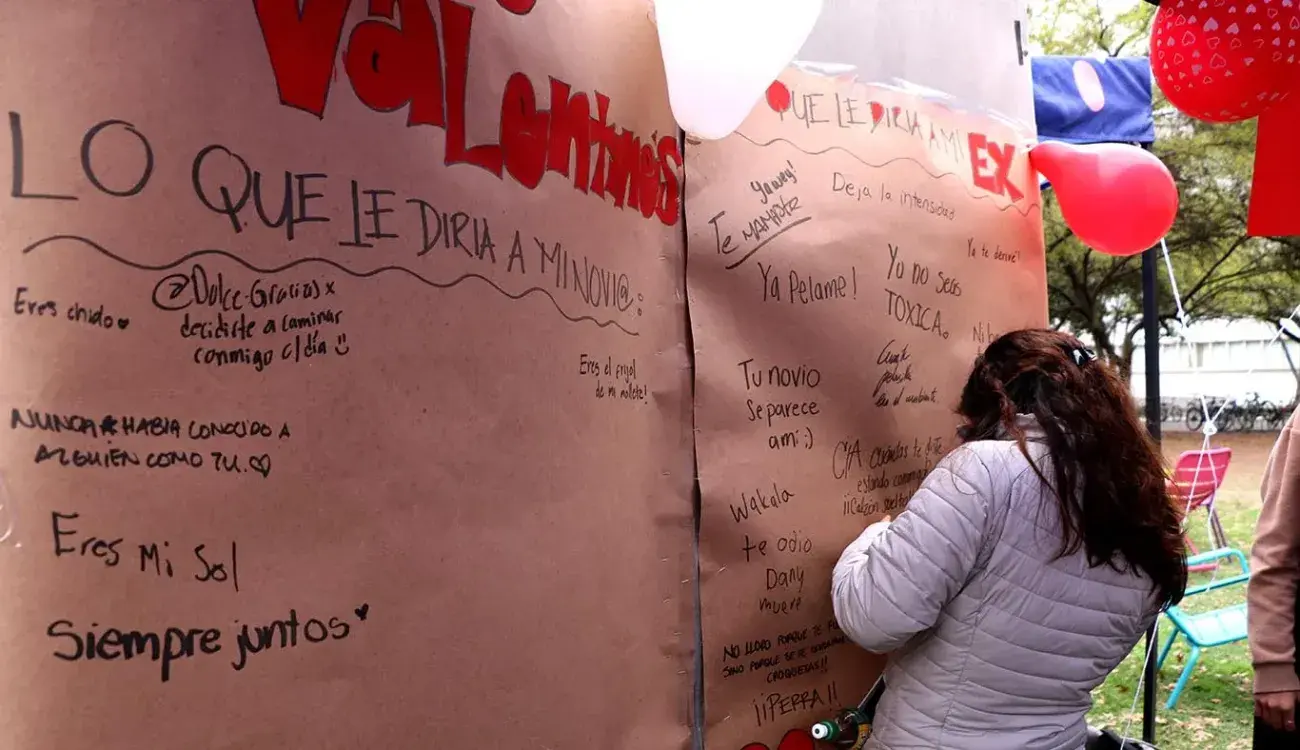 Valentine's
LO QUE LE DIRIA A MI NOVI@:
Eres chido
@Dulce-Gracias x
decidirte a caminar
conmigo c/día
Eres el frijol
de mi molete!
NUNCA HABIA CONOCIDO A
ALGUIEN COMO TU.
Eres Mi Sol
Siempre juntos
QUE LE DIRIA A MI EX
Ya wey!
Te MAMASTE
Deja la intensidad
Ya Pelame!
Yo no seas
TOXICA.
Ya te derivé!
Tu novio
Se parece
a mi :)
CIA cuántas te
estando conmigo
¡¡Calzón
Wakala
te odio
Dany
muere
NO LLORO PORQUE TE
SINO PORQUE SE TE
CROQUETAS!!
¡¡PERRA!!